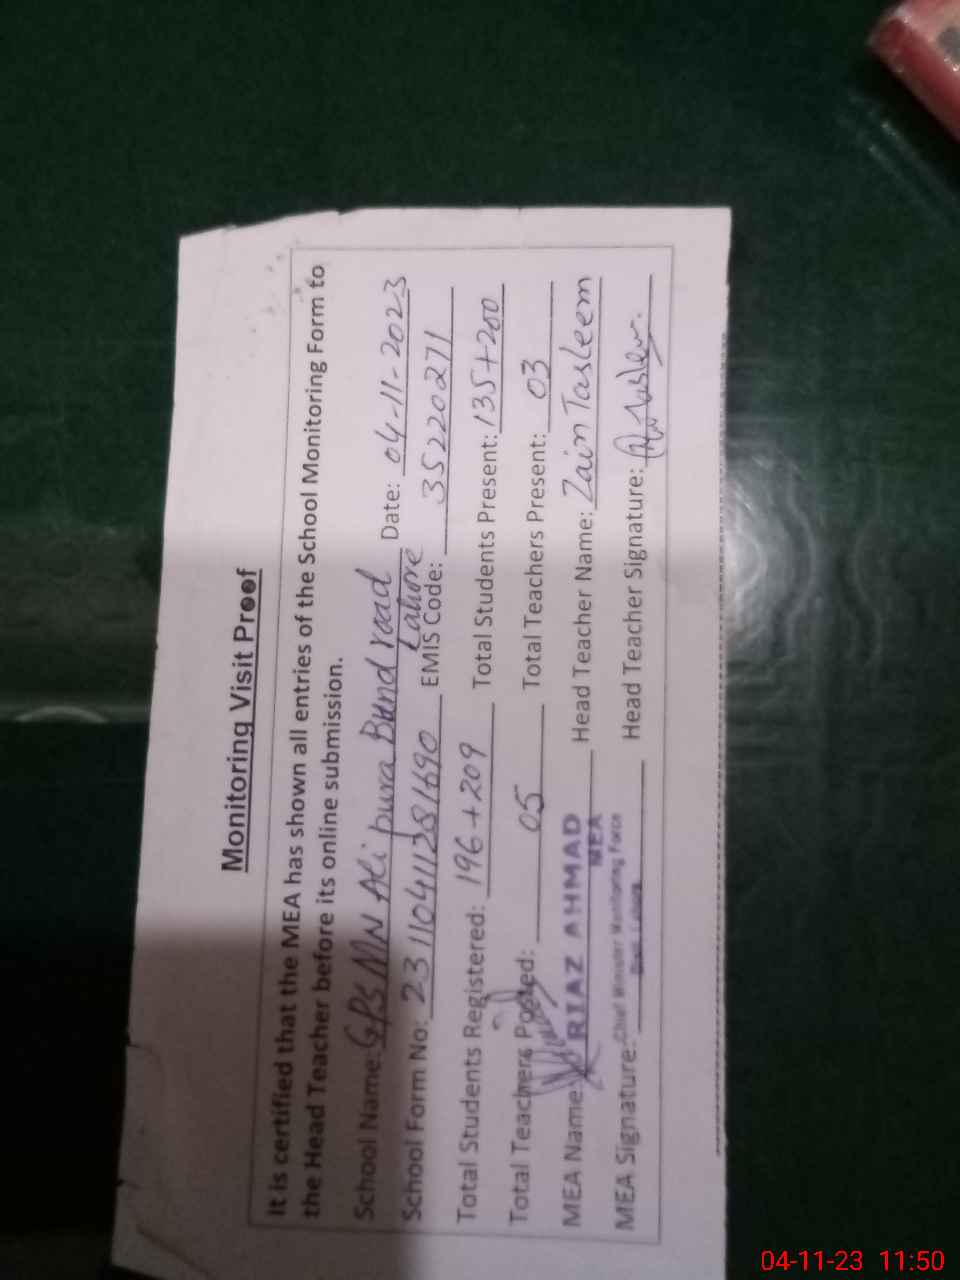 Monitoring Visit Proof
It is certified that the MEA has shown all entries of the School Monitoring Form to
the Head Teacher before its online submission.
School Name: GPS MN Ali pura Bund road Date: 04-11-2023
Lahore
School Form No: 23110411281690 EMIS Code: 35220271
Total Students Registered: 196+209 Total Students Present: 135+200
Total Teachers Posted: 05 Total Teachers Present: 03
MEA Name: RIAZ AHMAD Head Teacher Name: Zain Tasleem
MEA
MEA Signature: Chief Minister Monitoring Force Head Teacher Signature:
04-11-23 11:50